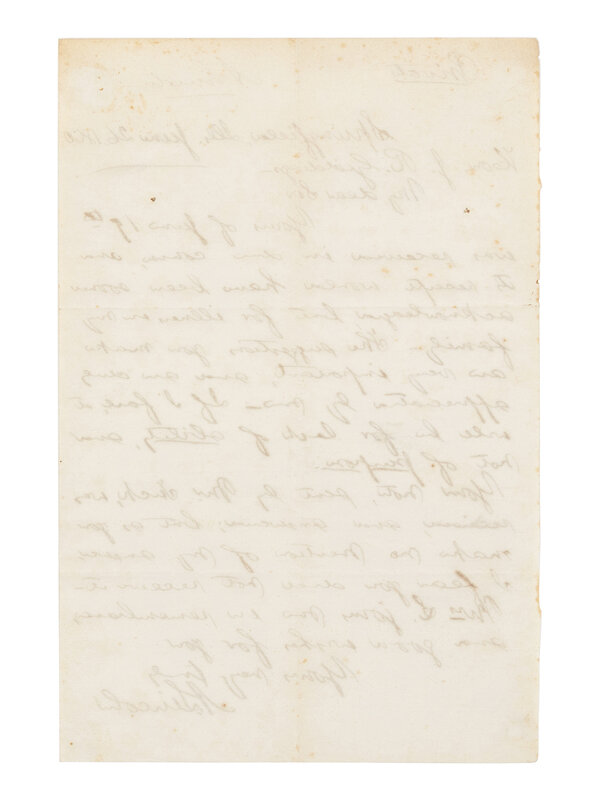 Springfield, Ills, June 26, 1860
Hon. J. R. Giddings
My dear Sir
Yours of June 19th
was received in due course, and
its receipt would have been sooner
acknowledged but for illness in my
family. The suggestions you make
are very important, and are duly
appreciated by me. If I fail, it
will be for lack of ability, and
not of purpose.
Your note, sent by Mr. Tuck, was
received, and answered; but as you
make no mention of my answer
I fear you did not receive it
Mrs. L. joins me in remembrance
and good wishes for you
Yours very truly
A. Lincoln